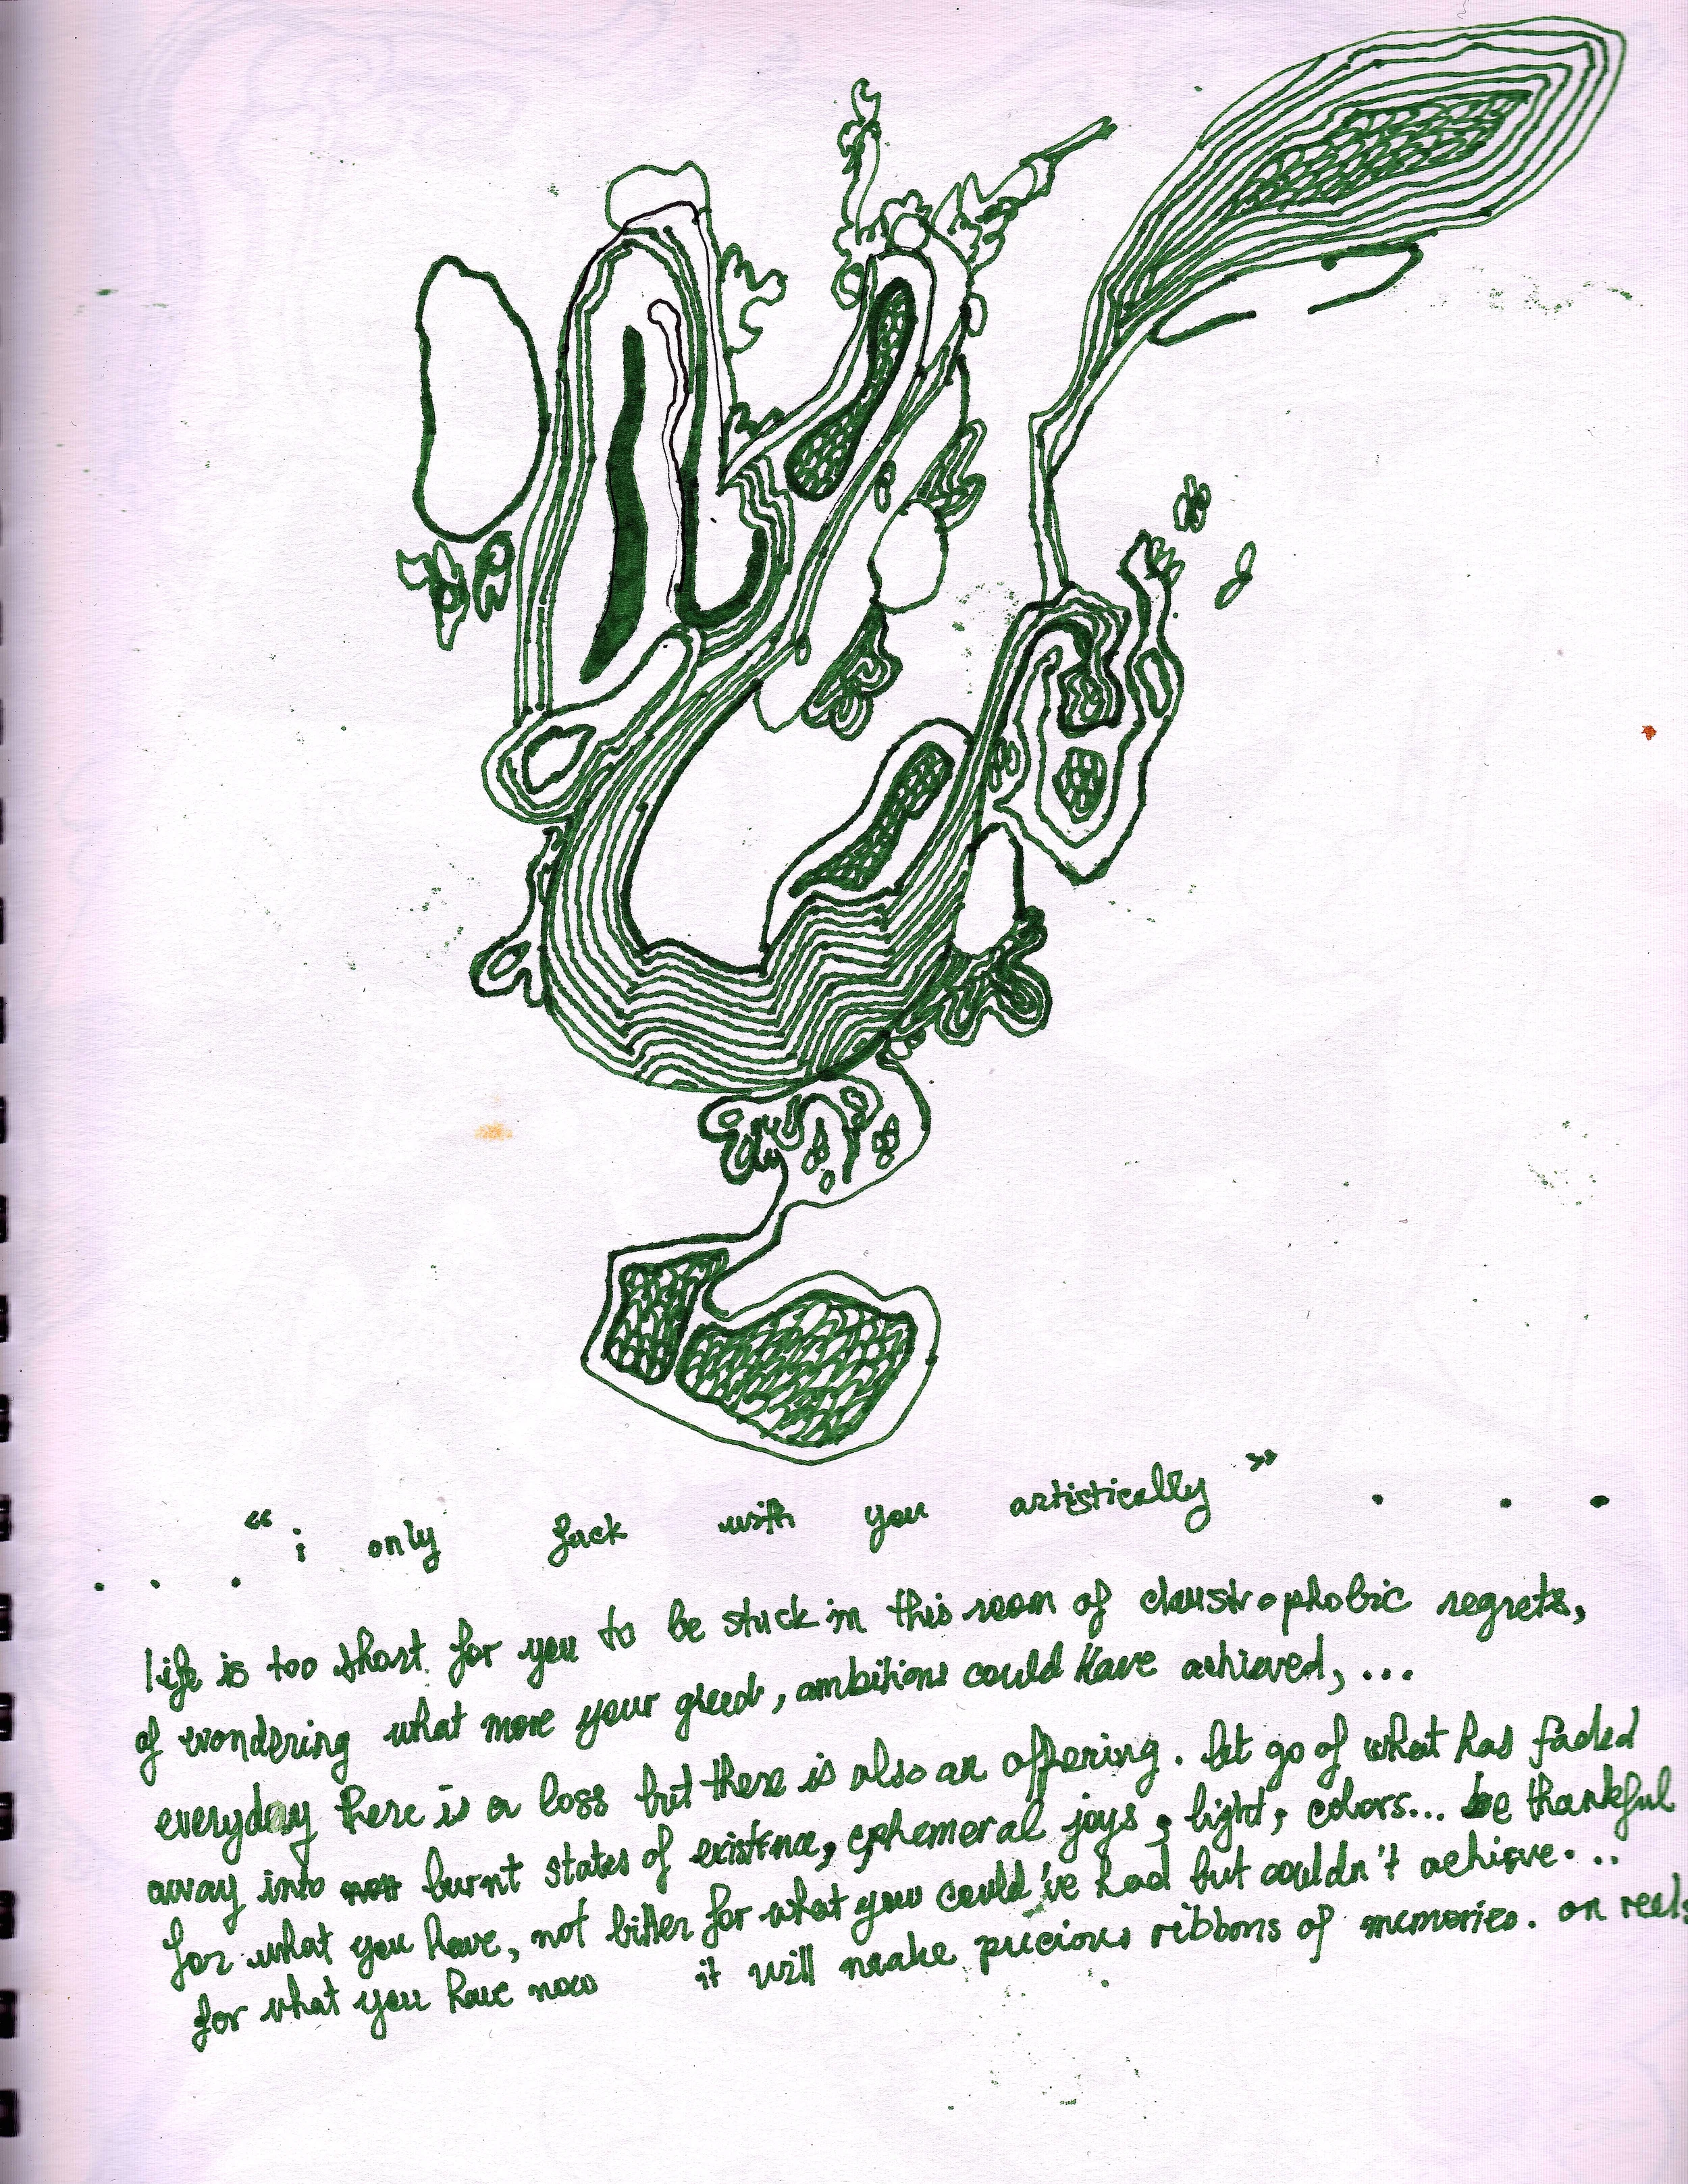 “ i only fuck with you artistically ” . . .
. . .
life is too short for you to be stuck in this room of claustrophobic regrets,
of wondering what more your greed, ambitions could have achieved, ...
everyday there is a loss but there is also an offering. let go of what has faded
away into burnt states of existence, ephemeral joys, light, colors... be thankful
for what you have, not bitter for what you could've had but couldn't achieve...
for what you have now it will make precious ribbons of memories. on reels